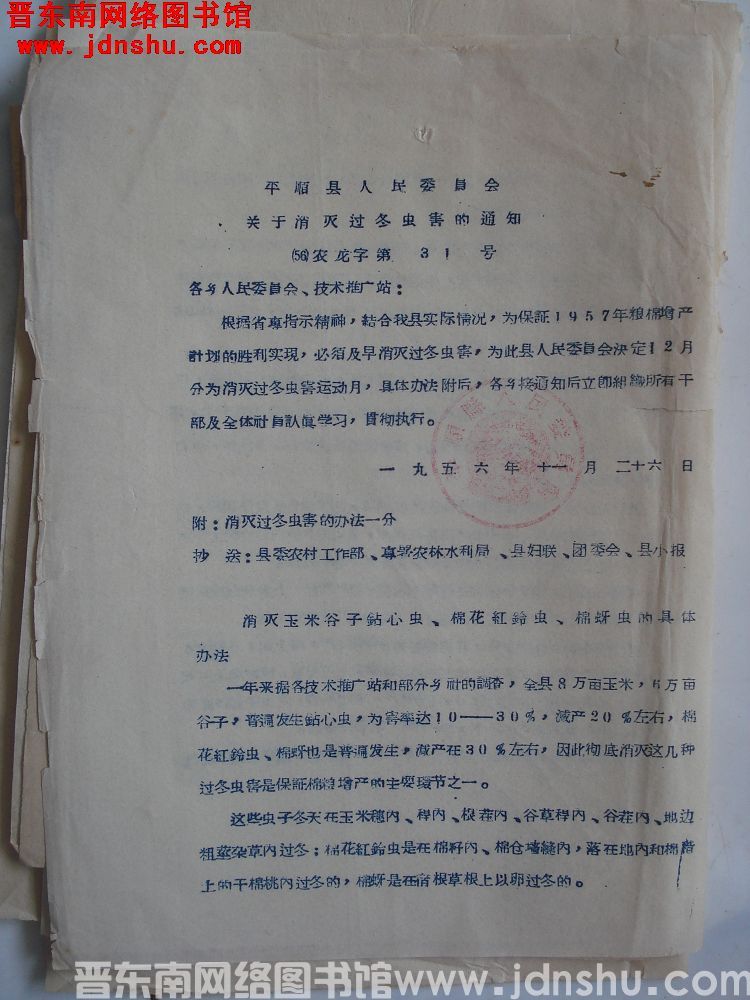 晋东南网络图书馆
www.jdnshu.com
平顺县人民委员会
关于消灭过冬虫害的通知
(56)农龙字第 31 号
各乡人民委员会、技术推广站：
根据省專指示精神，結合我县实际情况，为保証1957年粮棉增产
計划的胜利实现，必须及早消灭过冬虫害，为此县人民委員会决定12月
分为消灭过冬虫害运动月，具体办法附后，各乡接通知后立即組織所有干
部及全体社員認眞学习，貫彻执行。
一九五六年十一月二十六日
附：消灭过冬虫害的办法一分
抄 送：县委农村工作部、專署农林水利局、县妇联、团委会、县小报
消灭玉米谷子鉆心虫、棉花紅鈴虫、棉蚜虫的具体
办法
一年来据各技术推广站和部分乡社的調查，全县8万亩玉米，6万亩
谷子，普遍发生鉆心虫，为害率达10——30%，減产20%左右，棉
花紅鈴虫、棉蚜也是普遍发生，減产在30%左右，因此彻底消灭这几种
过冬虫害是保証棉粮增产的主要环节之一。
这些虫子冬天在玉米穗內、稈內、根茬內、谷草稈內、谷茬內、地边
粗桨杂草內过冬；棉花紅鈴虫是在棉籽內、棉仓墻縫內，落在地內和棉楷
上的干棉桃內过冬的，棉蚜是在宿根草根上以卵过冬的。
晋东南网络图书馆www.jdnshu.com